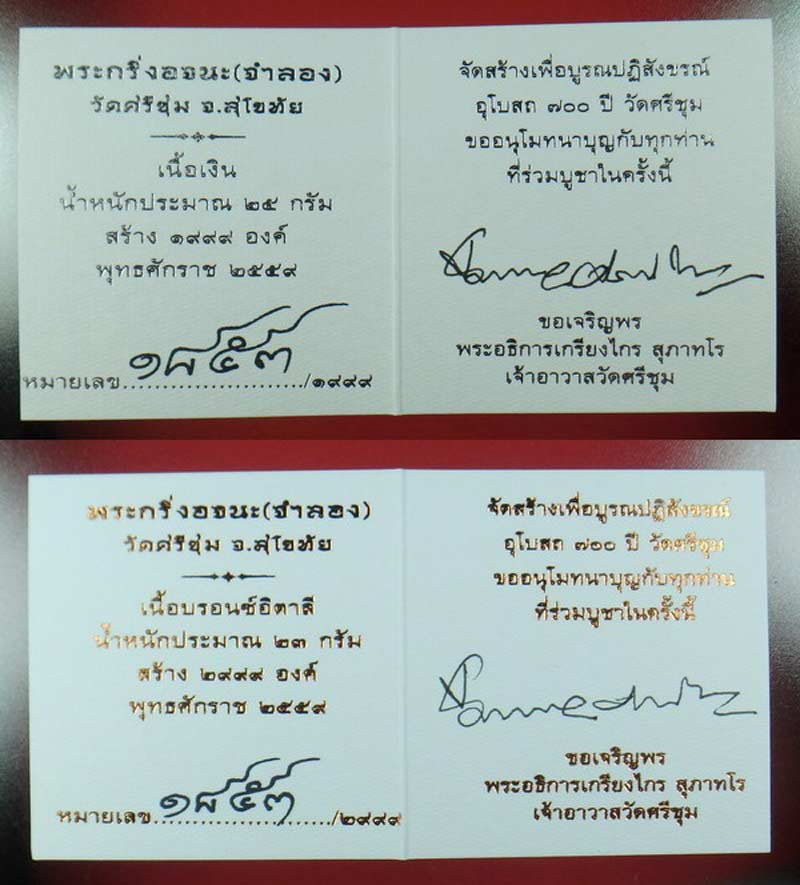 พระกริ่งอจนะ(จำลอง)
วัดศรีชุ่ม จ.สุโขทัย
เนื้อเงิน
น้ำหนักประมาณ ๒๕ กรัม
สร้าง ๑๙๙๙ องค์
พุทธศักราช ๒๕๕๙
หมายเลข......๑๘๕๓....../๑๙๙๙
จัดสร้างเพื่อบูรณปฏิสังขรณ์
อุโบสถ ๗๐๐ ปี วัดศรีชุม
ขออนุโมทนาบุญกับทุกท่าน
ที่ร่วมบูชาในครั้งนี้
ขอเจริญพร
พระอธิการเกรียงไกร สุภาทโร
เจ้าอาวาสวัดศรีชุม
พระกริ่งอจนะ(จำลอง)
วัดศรีชุ่ม จ.สุโขทัย
เนื้อบรอนซ์อิตาลี
น้ำหนักประมาณ ๒๓ กรัม
สร้าง ๒๙๙๙ องค์
พุทธศักราช ๒๕๕๙
หมายเลข......๑๘๕๓....../๒๙๙๙
จัดสร้างเพื่อบูรณปฏิสังขรณ์
อุโบสถ ๗๐๐ ปี วัดศรีชุม
ขออนุโมทนาบุญกับทุกท่าน
ที่ร่วมบูชาในครั้งนี้
ขอเจริญพร
พระอธิการเกรียงไกร สุภาทโร
เจ้าอาวาสวัดศรีชุม